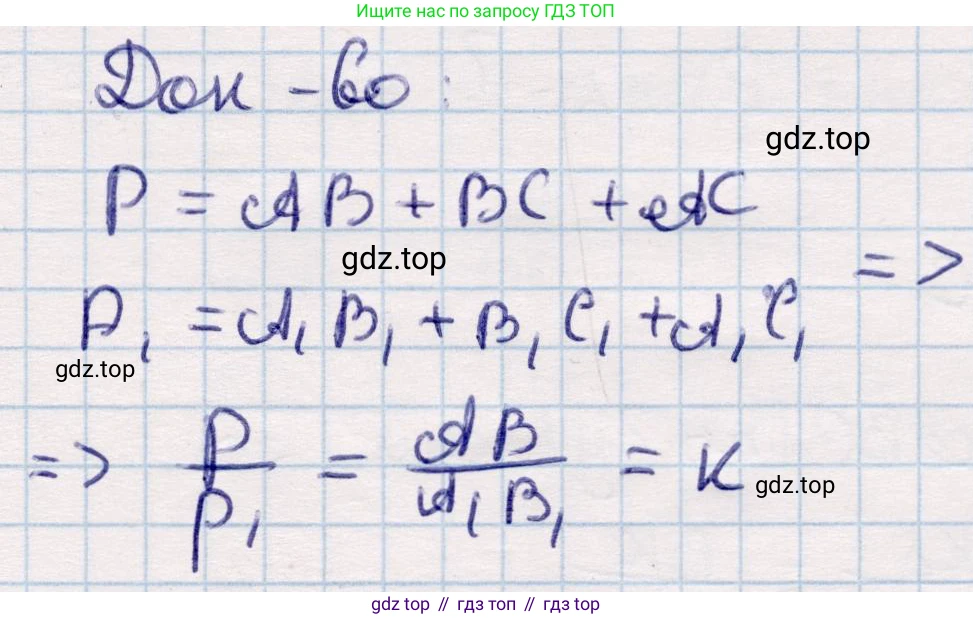 Ищите нас по запросу ГДЗ ТОП
Док-во:
gdz.top
P = AB + BC + AC
gdz.top
=>
P₁ = A₁B₁ + B₁C₁ + A₁C₁
gdz.top
=> P/P₁ = AB/A₁B₁ = K
gdz.top
gdz top // гдз топ // gdz top